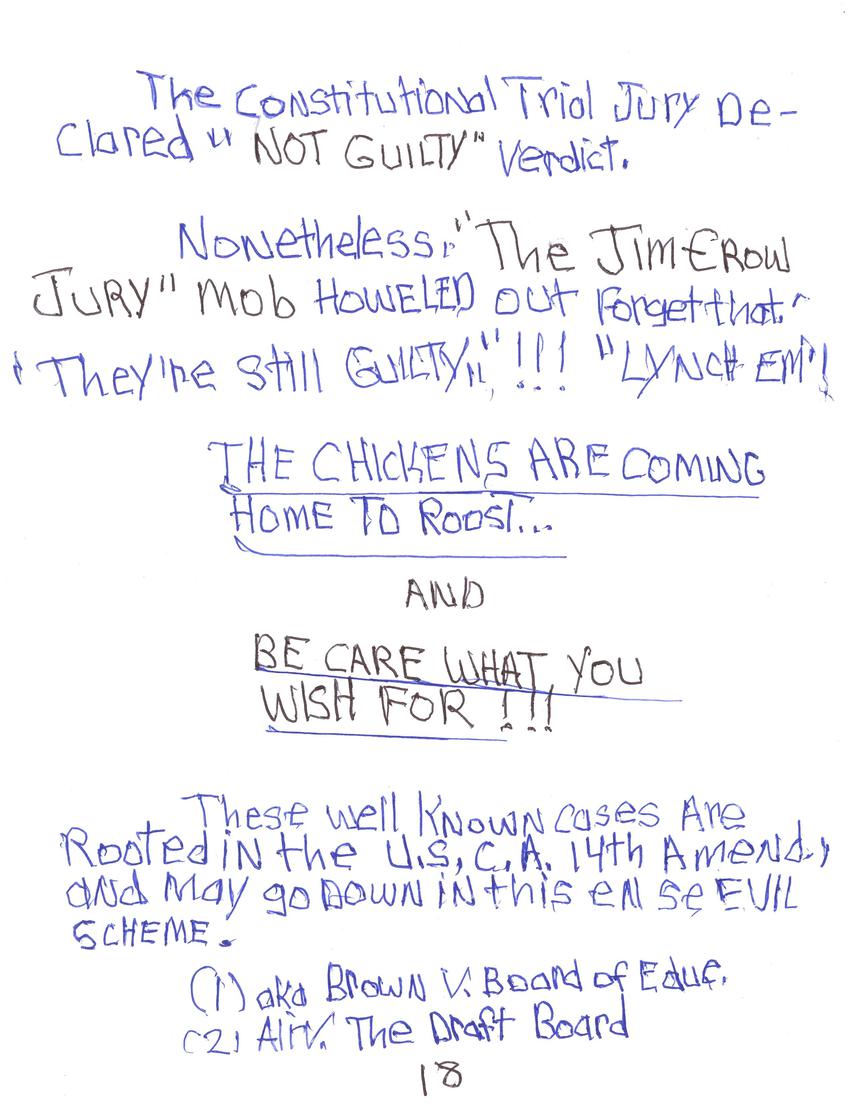 The Constitutional Trial Jury De-
Clared "NOT GUILTY" Verdict.
Nonetheless, "The Jim Crow
JURY" Mob HOWELED OUT Forget that."
"They're still GUILTY,"!!! "LYNCH EM"!
THE CHICKENS ARE COMING
HOME TO ROOST...
AND
BE CARE WHAT YOU
WISH FOR !!!
These well KNOWN cases Are
Rooted in the U.S.C.A. 14th Amend.,
and May go DOWN in this en se EVIL
SCHEME.
(1) aka Brown V. Board of Educ.
(2) Ali V. The Draft Board
18